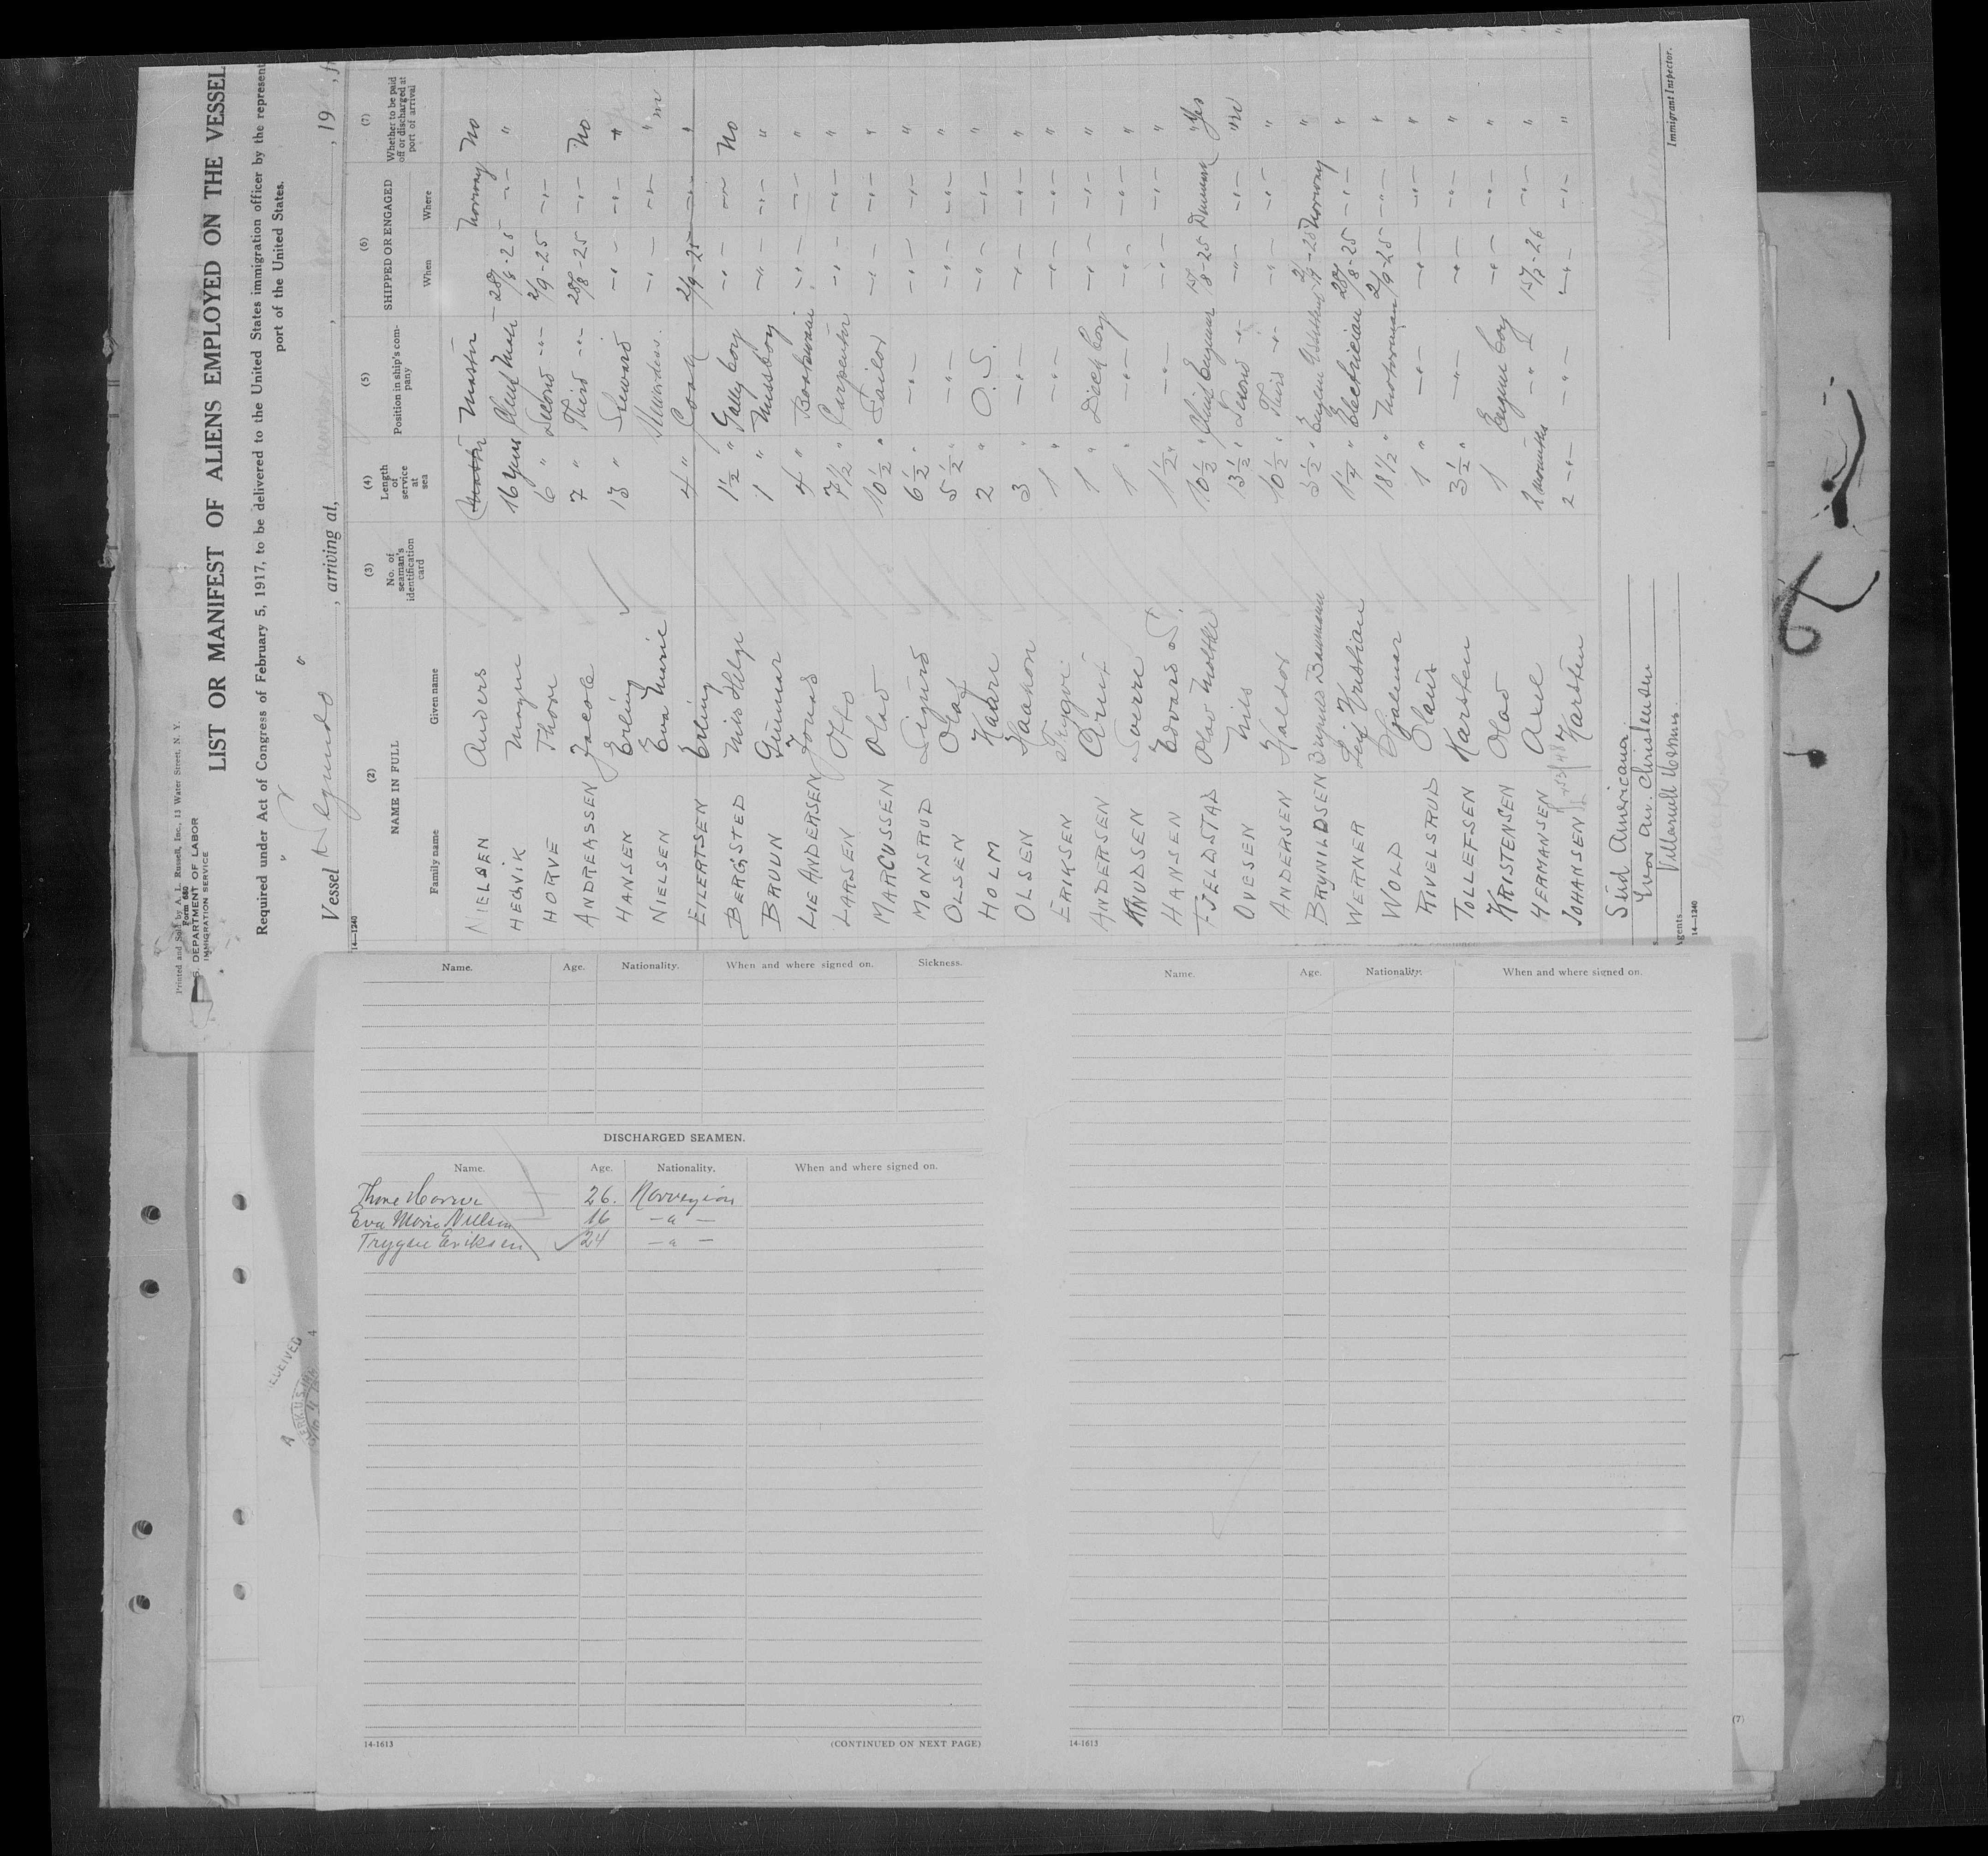 Printed and Sold by A. L. Russell, Inc., 13 Water Street, N. Y.
Form 680
DEPARTMENT OF LABOR
IMMIGRATION SERVICE
LIST OR MANIFEST OF ALIENS EMPLOYED ON THE VESSEL
Required under Act of Congress of February 5, 1917, to be delivered to the United States immigration officer by the represent
port of the United States.
Vessel , arriving at, , 19
14—1240
(2) (3) (4) (5) (6) (7)
NAME IN FULL No. of seaman's identification card Length of service at sea Position in ship's com- pany SHIPPED OR ENGAGED Whether to be paid off or discharged at port of arrival
Family name Given name When Where
NIELSEN Anders Master Norway No
HEGVIK Magne 16 years Chief Mate 28/8-25 -"- "
HORVE Thore 6 " Second -"- 2/9-25 -"-
ANDREASSEN Jacob 7 " Third -"- 28/8-25 -"- No
HANSEN Erling 13 " Steward -"- -"- "
NIELSEN Eva Marie Stewardess -"- -"- "
EILERTSEN Erling 4 " Cook 2/9-25 -"- "
BERGSTED Nils Helge 1½ " Gally boy -"- No
BRUUN Gunnar 1 " Messboy -"- -"- "
LIE ANDERSEN Jonas 4 " Boatswain -"- -"- "
LARSEN Otto 7½ " Carpenter -"- -"- "
MARCUSSEN Olav 10½ " Sailor -"- -"- "
MONSRUD Sigurd 6½ " -"- -"- -"- "
OLSEN Olaf 5½ " -"- -"- -"- "
HOLM Kaare 2 " O.S. -"- -"- "
OLSEN Haakon 3 " -"- -"- -"- "
ERIKSEN Trygve 1 " -"- -"- -"- "
ANDERSEN Arnt 1 " Deck boy -"- -"- "
KNUDSEN Sverre 1 " -"- -"- -"- "
HANSEN Edvard S. 1½ " -"- -"- -"- "
FJELDSTAD Olav Moltke 10½ " Chief Engineer 15/8-25 Danmark " Yes
OVESEN Nils 13½ " Second -"- -"- -"- "
ANDERSEN Haldor 10½ " Third -"- -"- -"- "
BRYNILDSEN Brynild Baumann 3½ " Engine Assistant 2/9-25 Norway "
WERNER Leif Kristian 1¼ " Electrician 28/8-25 -"- "
WOLD Hjalmar 18½ " Motorman 2/9-25 -"- "
RIVELSRUD Olaus 1 " -"- -"- -"- "
TOLLEFSEN Karsten 3½ " -"- -"- -"- "
KRISTENSEN Olav 1 Engine boy -"- -"- "
HERMANSEN Axel 2 months -"- 15/2-26 -"- "
JOHANSEN Karsten 2 -"- -"- -"- -"- "
Süd Americana.
Ivar An. Christensen
Agents
14—1240
Immigrant Inspector.
Name. Age. Nationality. When and where signed on. Sickness.
DISCHARGED SEAMEN.
Name. Age. Nationality. When and where signed on.
Thore 26. Norvegian
Eva Marie Nielsen 16 -"-
Trygve Eriksen 24 -"-
14-1613
(CONTINUED ON NEXT PAGE)
Name. Age. Nationality. When and where signed on.
14-1613
(7)